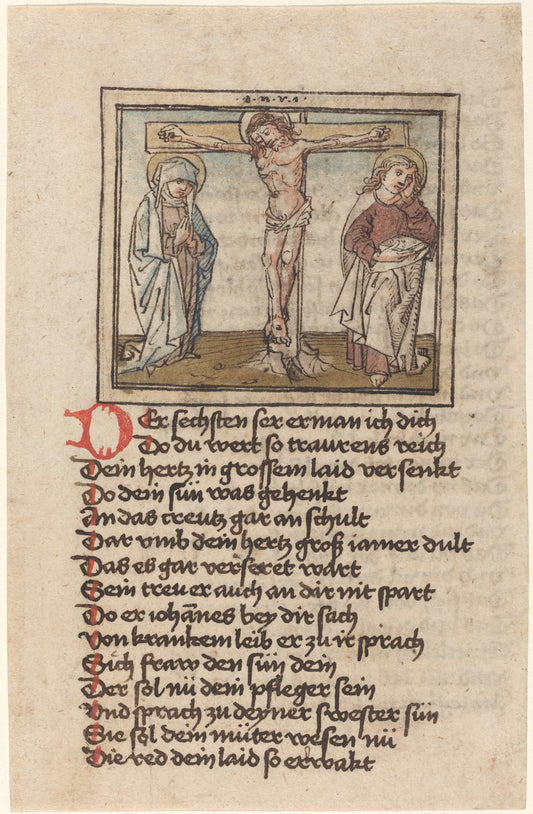 i·n·r·i·
Der sechsten ser erman ich dich
Do du wert so traurens reich
Dein hertz in grossem laid versenkt
Do dein sun was gehenkt
An das creutz gar an schult
Dar vmb dein hertz groß iamer dult
Das es gar verseret wart
Sein treu er auch an dir nit spart
Do er iohānes bey dir sach
Von krankem leib er zu ir sprach
Sich fraw den sün dein
Der sol nū dein pfleger sein
Vnd sprach zu deyner swester sün
Sie sol dein müter wesen nū
Die red dein laid so erwakt